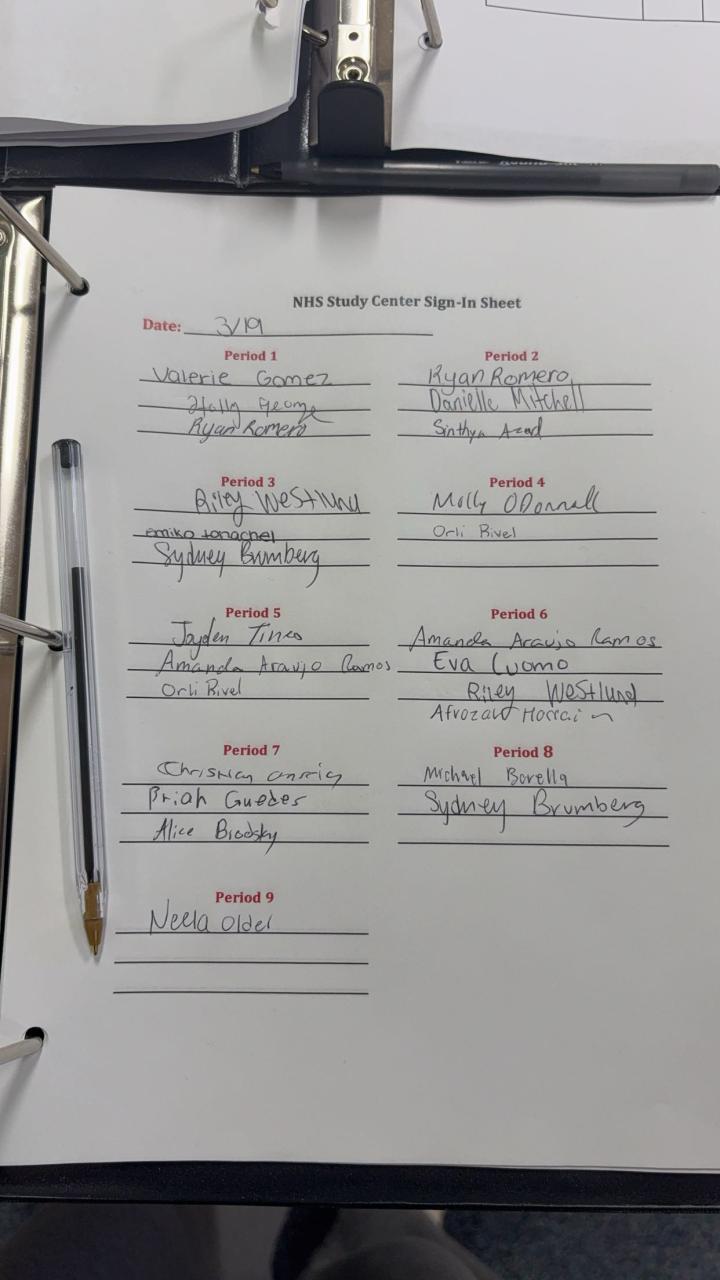 NHS Study Center Sign-In Sheet
Date: 3/19
Period 1
Valerie Gomez
Holly George
Ryan Romero
Period 2
Ryan Romero
Danielle Mitchell
Sinthya Azad
Period 3
Riley Westlund
emiko tonachel
Sydney Brumberg
Period 4
Molly ODonnell
Orli Rivel
Period 5
Jayden Tineo
Amanda Araujo Ramos
Orli Rivel
Period 6
Amanda Araujo Ramos
Eva Cuomo
Riley Westlund
Period 7
Briah Guedes
Alice Brodsky
Period 8
Michael Borella
Sydney Brumberg
Period 9
Neela Older